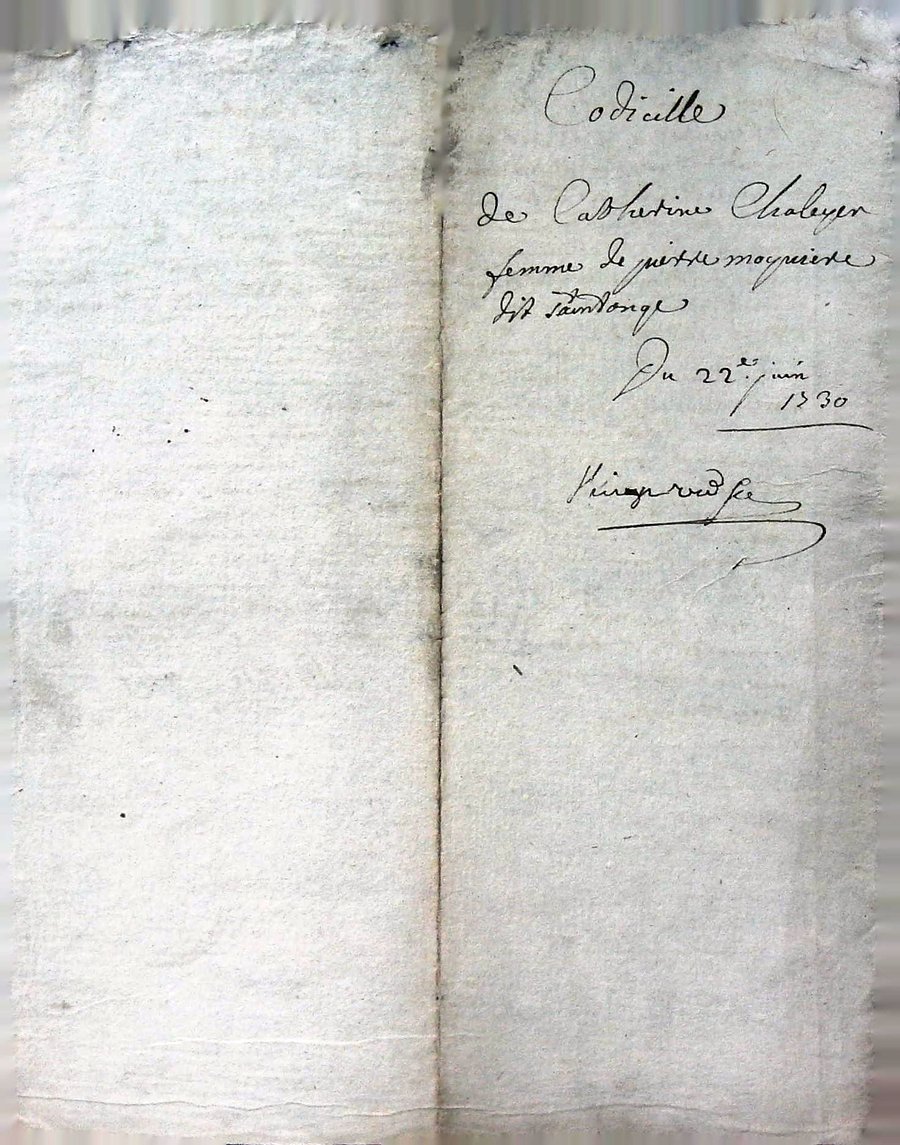 Codicille
de Catherine Chaleyer
femme de pierre moyniere
dit saintonge
Du 22e. juin
1730